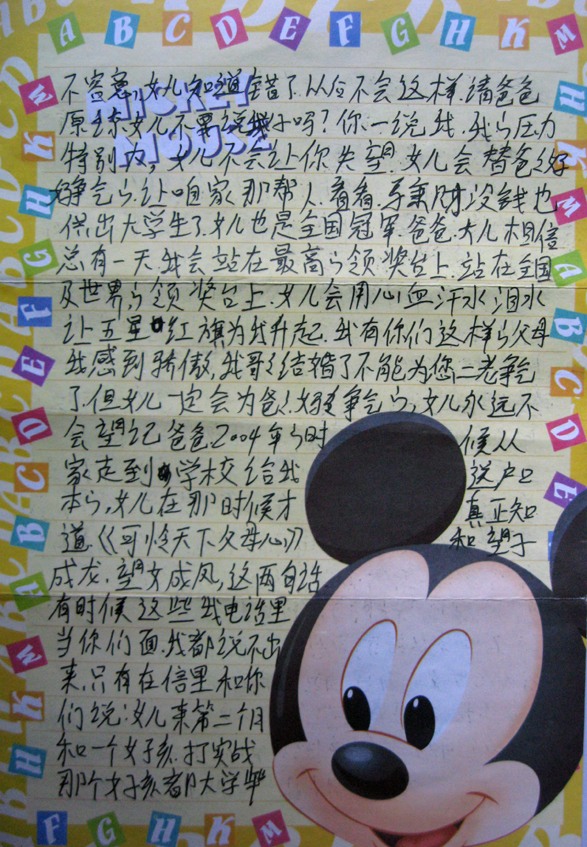 A B C D E F G H K M
不容意,女儿知道错了.从后不会这样.请爸爸
原谅女儿不要说我了好吗?你一说我.我的压力
特别大,女儿不会让你失望.女儿会替爸爸好
好争气的.让咱家那帮人.看看.导秉财没钱也,
供出大学生了.女儿也是全国冠军.爸爸.女儿相信
总有一天.我会站在最高的领奖台上.站在全国
及世界的领奖台上.女儿会用心血汗水泪水
让五星红旗为我升起.我有你们这样的父母
我感到骄傲.我哥结婚了不能为您二老争气
了.但女儿一定会为爸爸妈妈争气的,女儿永远不
会望记爸爸2004年的时候从
家走到学校给我送户口
本的,女儿在那时候才真正知
道.《可怜天下父母心》和望子
成龙.望女成凤,这两句话
有时候这些我电话里
当你们面.我都说不出
来.只有在信里和你
们说:女儿来第二个月
和一个女子孩.打实战
那个女子孩都大学毕
F G H K M
MICKEY
MOUSE